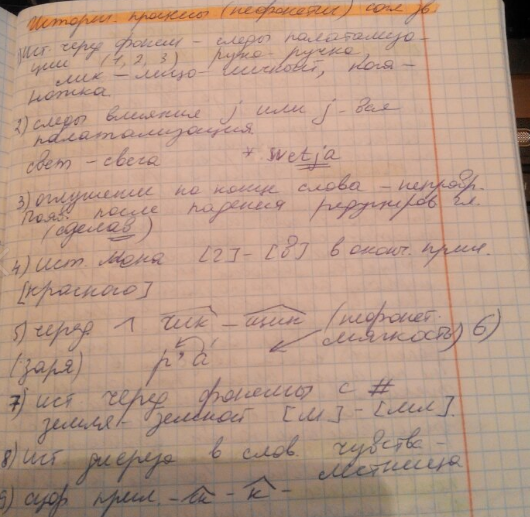 Историч. процессы (нефонетич) согл зв.
1) Ист. черед фонем – следы палатализа-
ции (1, 2, 3) рука – ручка,
лик – лицо – личной, нога –
ножка
2) следы влияния j или j-вая
палатализация
свет – свеча * svetja
3) оглушение на конце слова – непозр.
Появ. после падения редуциров гл.
(сделав)
4) ист. мена [г] – [в] в оконч. прил.
[красного]
5) черед 1 чик – щик (нефонет.
мягкость) 6)
(заря) р' á
7) ист черед фонемы с #
земля – земной [м] – [мл].
8) ист диереза в слов. чувства –
лестница
9) суф прил. -ск - к -